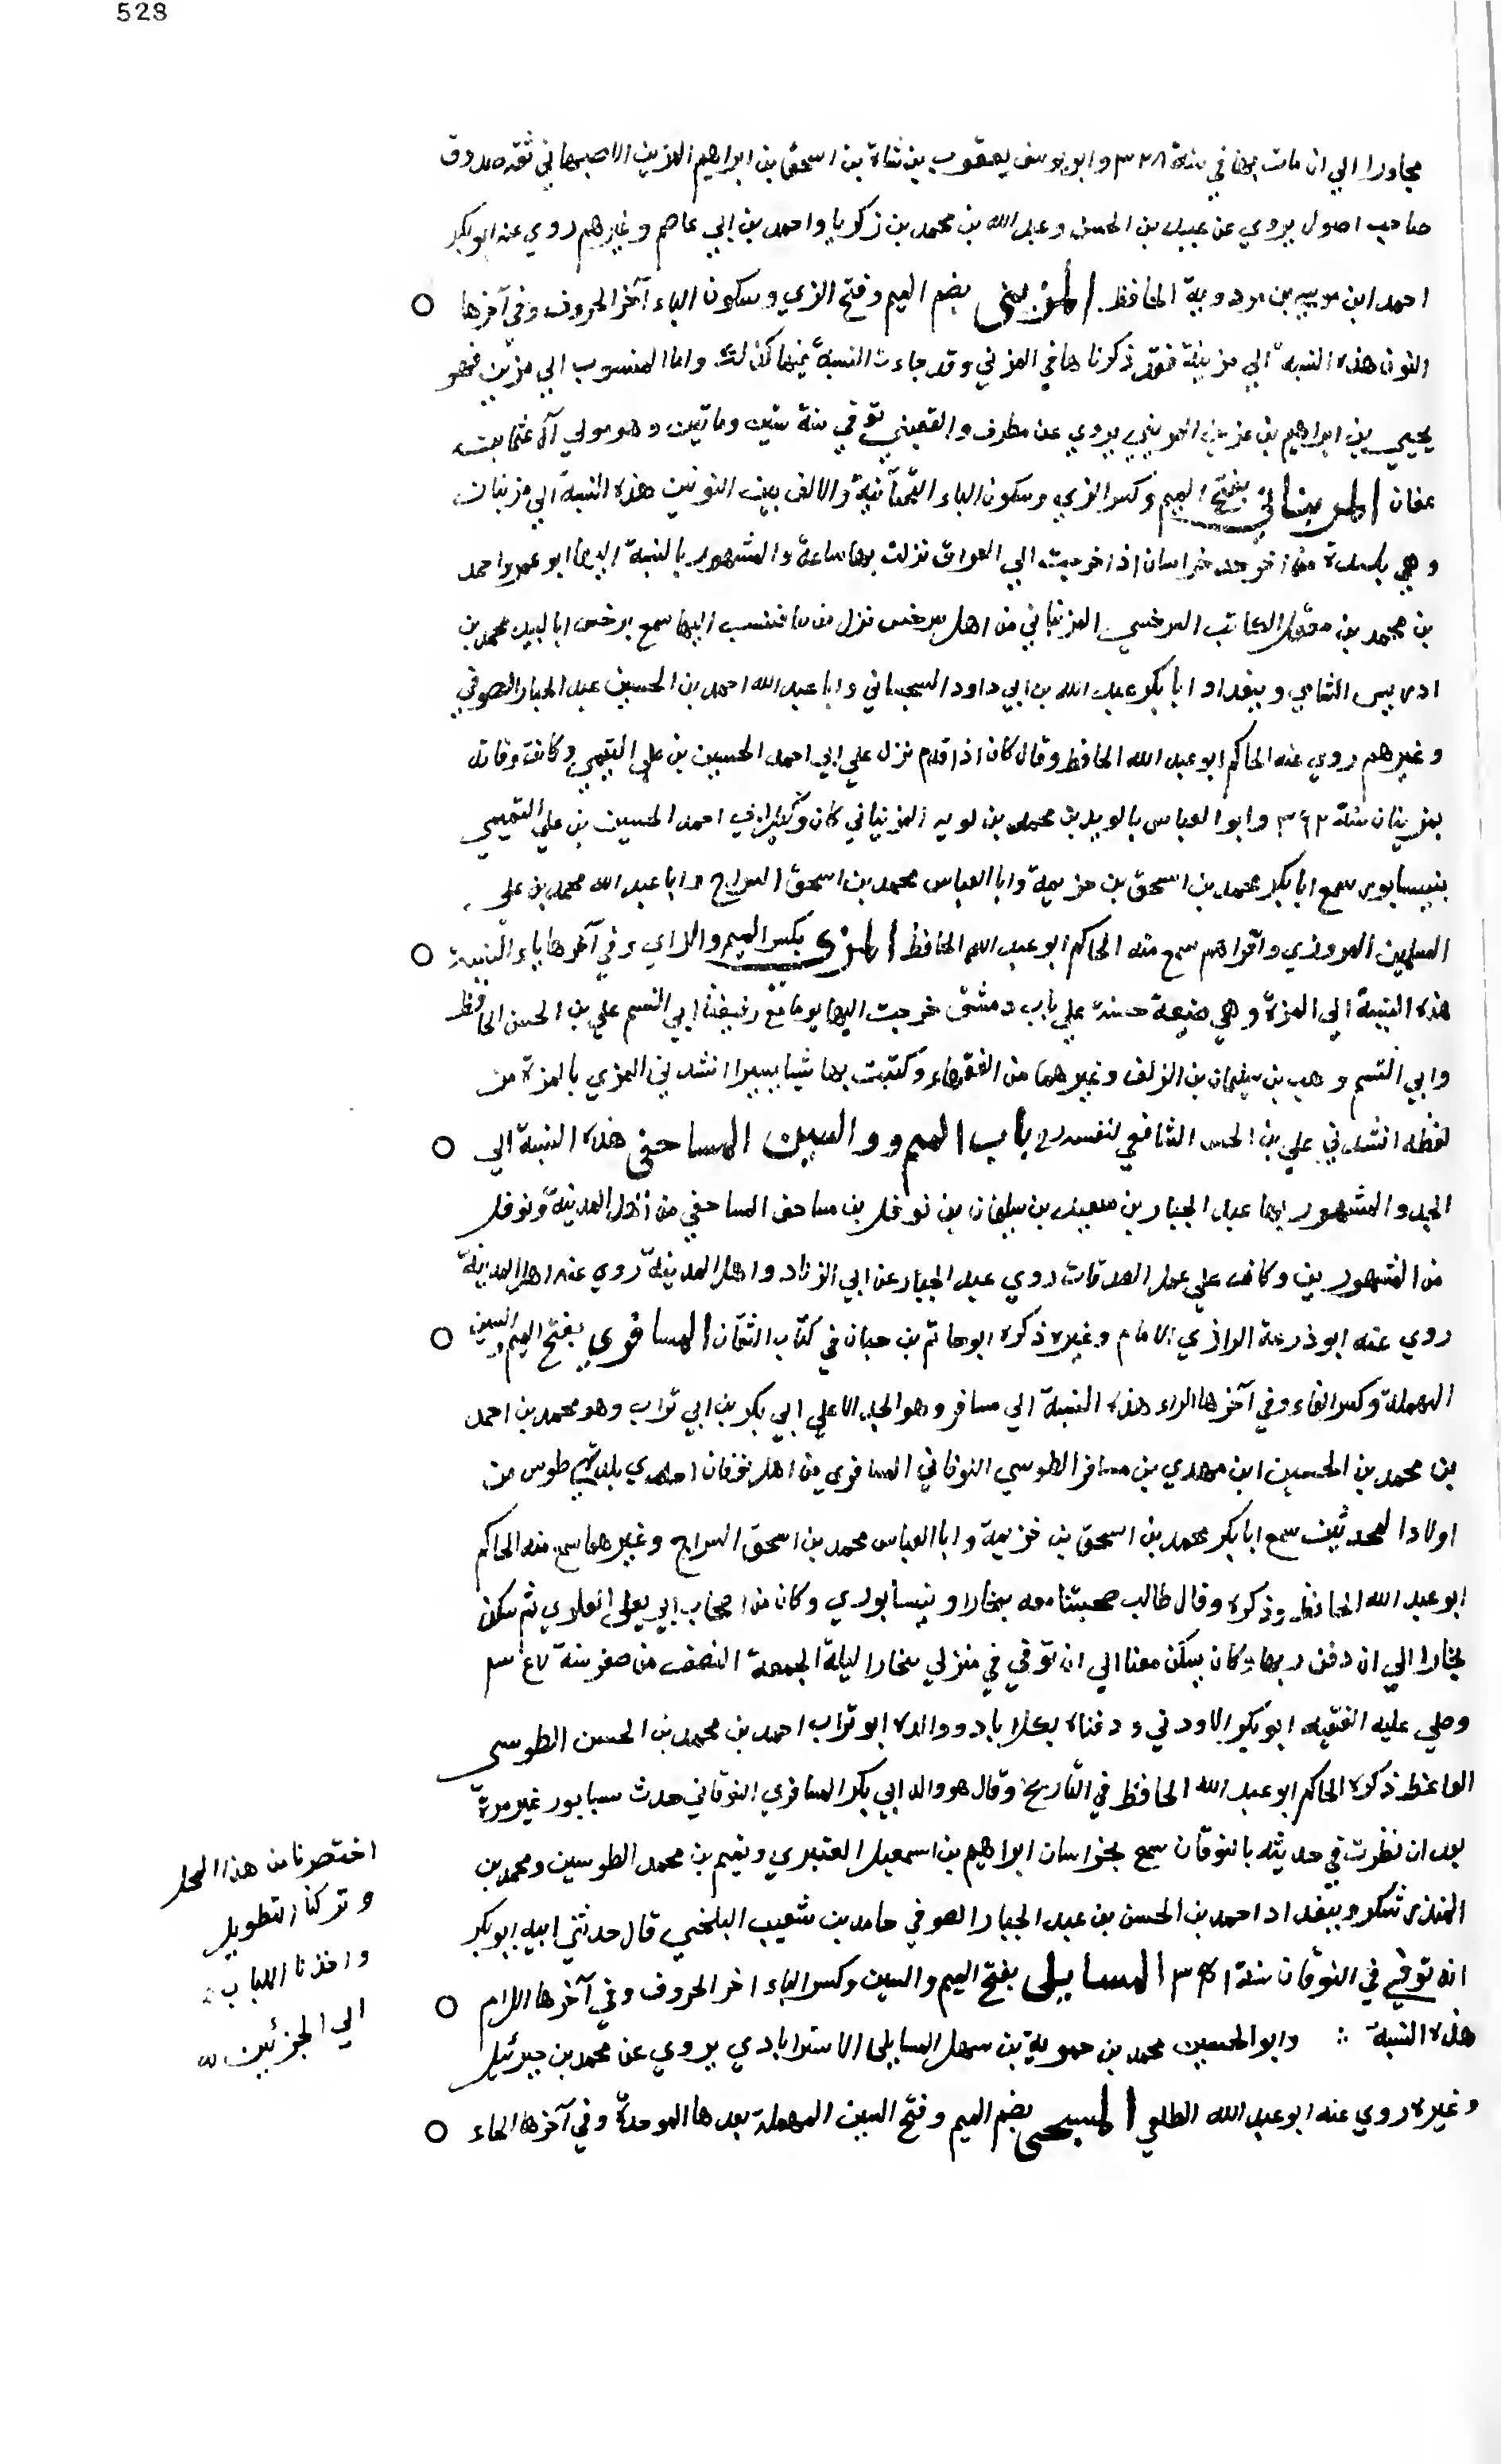 528
مجاورا الي ان مات بها في سنة ٣٢٨ وابو يوسف يعقوب بن اسحق بن ابراهيم المزين الاصبهاني ثقه صدوق
صاحب اصول يروي عن عبيد بن الحسن وعبد الله بن محمد بن زكريا واحمد بن ابي عاصم وغيرهم روي عنه ابو بكر
احمد ابن موسي بن مردوية الحافظ المزيني بضم الميم وفتح الزي وسكون الياء آخر الحروف وفي آخرها
النون هذه النسبة الي مزينة فقد ذكرنا ها في المزني وقد جاءت النسبة كذلك واما المنسوب الي مزين فهو
يحيي بن ابراهيم بن مزين المزيني يروي عن مطرف والقعنبي توفي سنة ستين وماتين وهو مولي آل عثما بن
عفان المزيناني بفتح الميم وكسر الزي وسكون الياء التحتانية والالف بين النونين هذه النسبة الي مزينان
وهي بليدة من آخر حد خراسان اذا خرجت الي العراق نزلت بها ساعة والمشهور بالنسبة اليها ابو عمرو احمد
بن محمد بن معقل الكاتب السرخسي المزيناني من اهل سرخس نزل مزينان فنسب اليها سمع بسرخس ابا لبيد محمد بن
ادريس الشامي وببغداد ابا بكر عبد الله بن ابي داود السجستاني وابا عبد الله احمد بن الحسين عبد الجبار الصوفي
وغيرهم روي عنه الحاكم ابو عبد الله الحافظ وقال كان اذا قدم نزل علي ابي احمد الحسين بن علي التميمي وكانت وفاته
بمزينان سنة ٣٦٣ وابو العباس بالويه بن محمد بن بالويه المزيناني كان وكيل ابي احمد الحسين بن علي التميمي
بنيسابور سمع ابا بكر محمد بن اسحق بن خزيمة وابا العباس محمد بن اسحق السراج وابا عبد الله محمد بن علي
المروزي واقرانهم سمع منه الحاكم ابو عبد الله الحافظ المزي بكسر الميم والزاي وفي آخرها ياء النسبة
هذه النسبة الي المزة وهي ضيعة حسنة علي باب دمشق خرجت اليها يوما مع رفيقنا ابي القسم علي بن الحسن الحافظ
وابي القسم وهب بن سليمان بن الزلف وغيرهما من الفقهاء وكتبت بها شيا يسيرا انشدني المزي بالمزة من
لفظه انشدني علي بن الحسن الشافعي لنفسه باب الميم و والسين المساحقي هذه النسبة الي
الجد والمشهور بها عبد الجبار بن سعيد بن سليمان بن نوفل بن مساحق المساحقي من اهل المدينة ونوفل
من المشهورين وكانت علي عمل الصدقات روي عبد الجبار عن ابي الزناد واهل المدينة روي عنه اهل المدينة
روي عنه ابو ذرعة الرازي الامام وغيره ذكره ابو حاتم بن حبان في كتاب الثقات المسافري بفتح الميم والسين
المهملة وكسر الفاء وفي آخرها الراء هذه النسبة الي مسافر وهو الجد الاعلي ابي بكر بن ابي تراب وهو محمد بن احمد
بن محمد بن الحسين ابن مهدي بن مسافر الطوسي النوقاني المسافري من اهل نوقان احدي بلدتي طوس من
اولاد المحدثين سمع ابا بكر محمد بن اسحق بن خزيمة وابا العباس محمد بن اسحق السراج وغيرهما سمع منه الحاكم
ابو عبد الله الحافظ وذكره وقال طالب صحبتنا معه ببخارا ونيسابوري وكان من اصحاب ابي يعلي العلوي ثم سكن
بخارا الي ان دفن بها وكان يسكن معنا الي ان توفي في منزلي ببخارا ليلة الجمعة النصف من صفر سنة ٣٤٧
وصلي عليه الفقيه ابو بكر الاودني ودفناه بكلاباد ووالده ابو تراب احمد بن محمد بن الحسن الطوسي
الواعظ ذكره الحاكم ابو عبد الله الحافظ في التاريخ وقال هو والد ابي بكر المسافري النوقاني حدث بنيسابور غير مرة
بعد ان نظرت في حديثه بالنوقان سمع بخراسان ابراهيم بن اسمعيل العنبري وتميم بن محمد الطوسين ومحمد بن
المنذر شكر وببغداد احمد بن الحسن بن عبد الجبار الصوفي حامد بن شعيب البلخي قال حدثني ابنه ابو بكر
انه توفي في النوقان سنة المسايلي بفتح الميم والسين وكسر الياء اخر الحروف وفي آخرها اللام
هذه النسبة وابو الحسين محمد بن حموية بن سهل المسايلي الاسترابادي يروي عن محمد بن جبرئيل
وغيره روي عنه ابو عبد الله الطلقي المسبحي بضم الميم وفتح السين المهملة بعدها الموحدة وفي آخرها الحاء
اختصرنا من هذا المحل
وتركنا التطويل
واخذنا اللباب
الي الجزئين